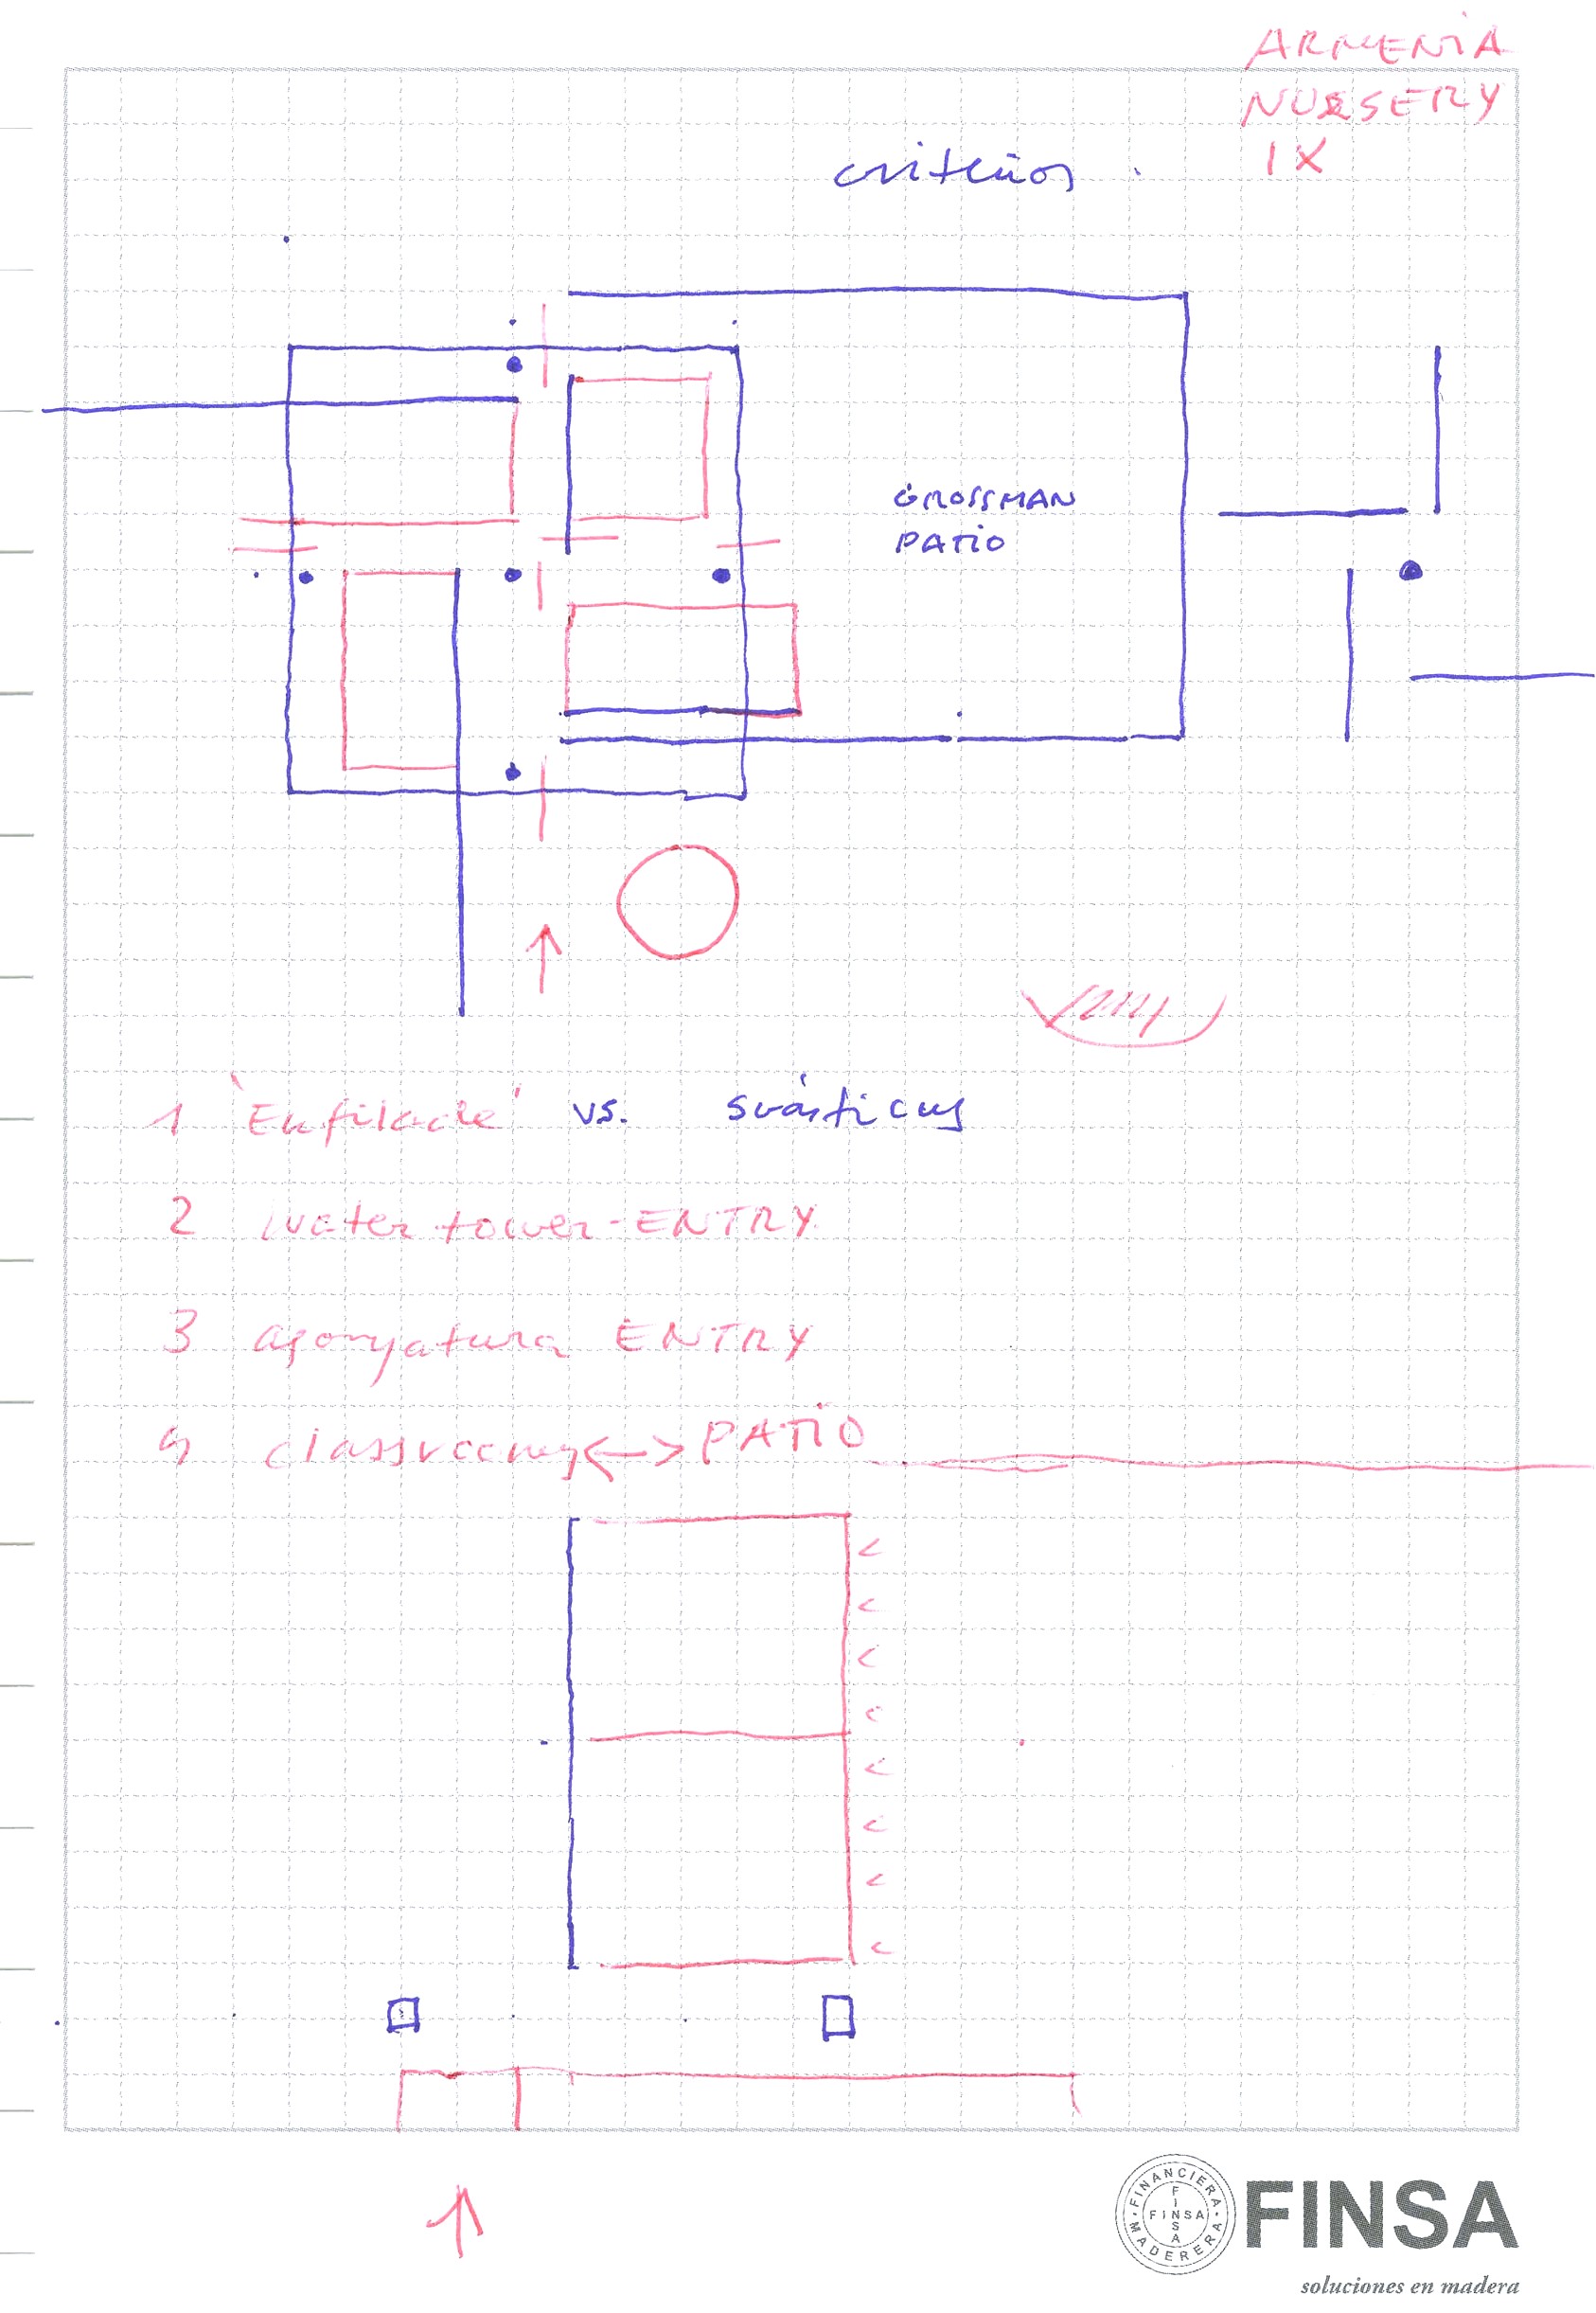 ARMENIA
NURSERY
IX
criterios.
GROSSMAN
PATIO
1 'Enfilade' vs. svásticas
2 water tower-ENTRY
3 ENTRY
4 classrooms <-> PATIO
FINANCIERA MADERERA
FINSA
FINSA
FINSA
soluciones en madera